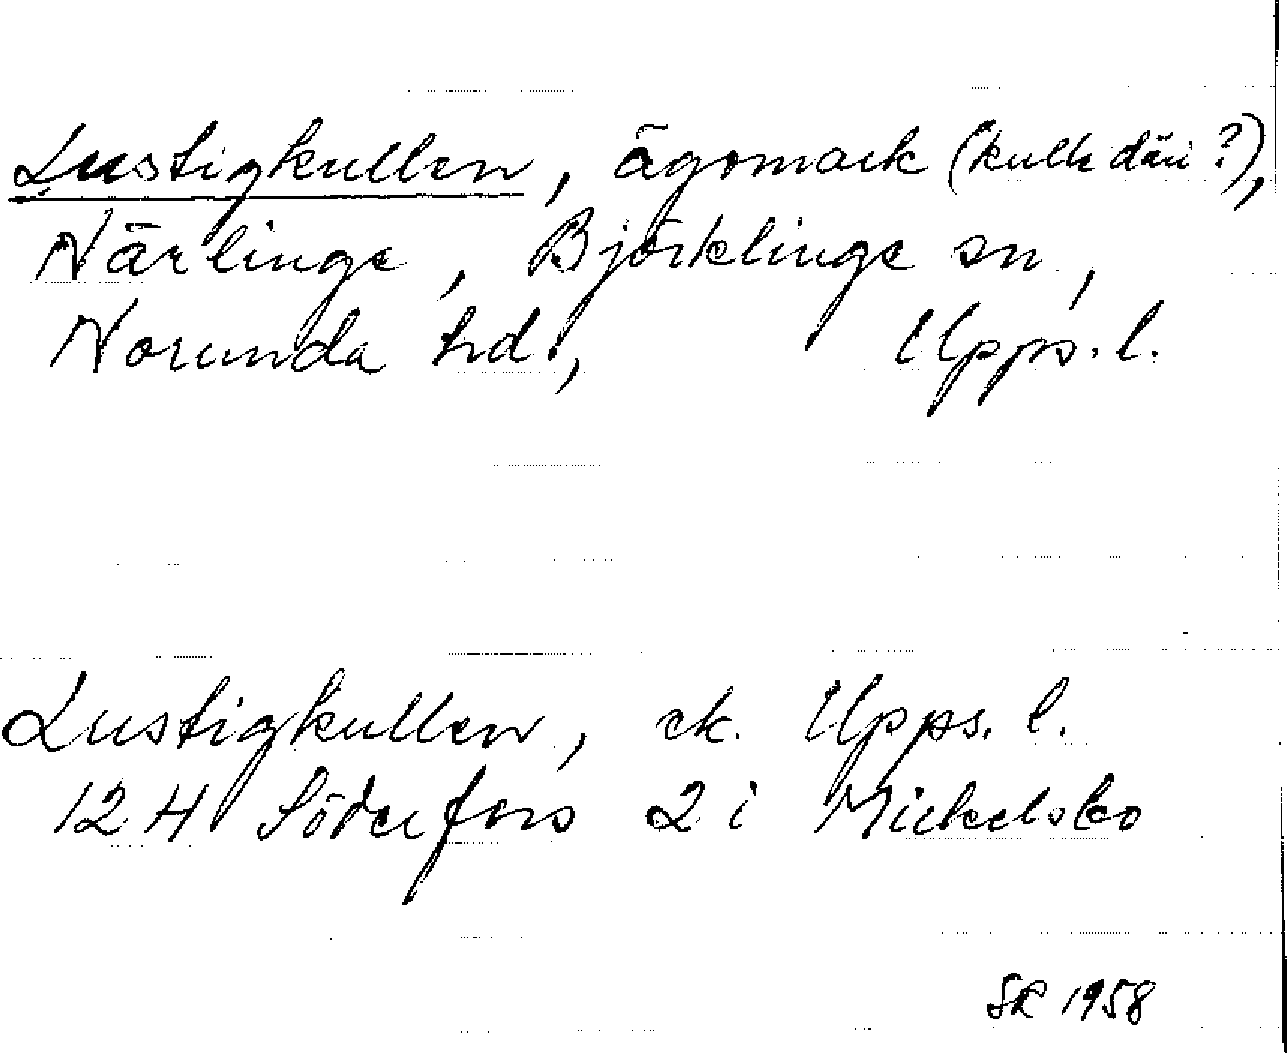 Lustigkullen, ägomark (kulle däri?),
Närlinge, Björklinge sn,
Norunda hd., Upps. l.
Lustigkullen, ek. Upps. l.
12 H Söderfors 2 i Mickelsbo
SR 1958